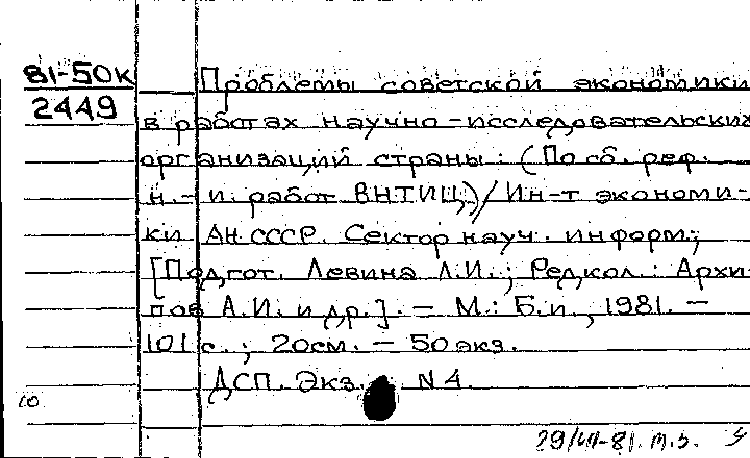 81-50к
2449
Проблемы советской экономики
в работах научно-исследовательских
организаций страны: (По сб. реф.
н.-и. работ ВНТИЦ)/Ин-т экономи-
ки АН СССР. Сектор науч. информ.;
[Подгот. Левина Л.И.; Редкол.: Архи-
пов А.И. и др.]. - М.: Б.и., 1981. -
101 с.; 20см. - 50 экз.
ДСП. Экз. N 4.
10